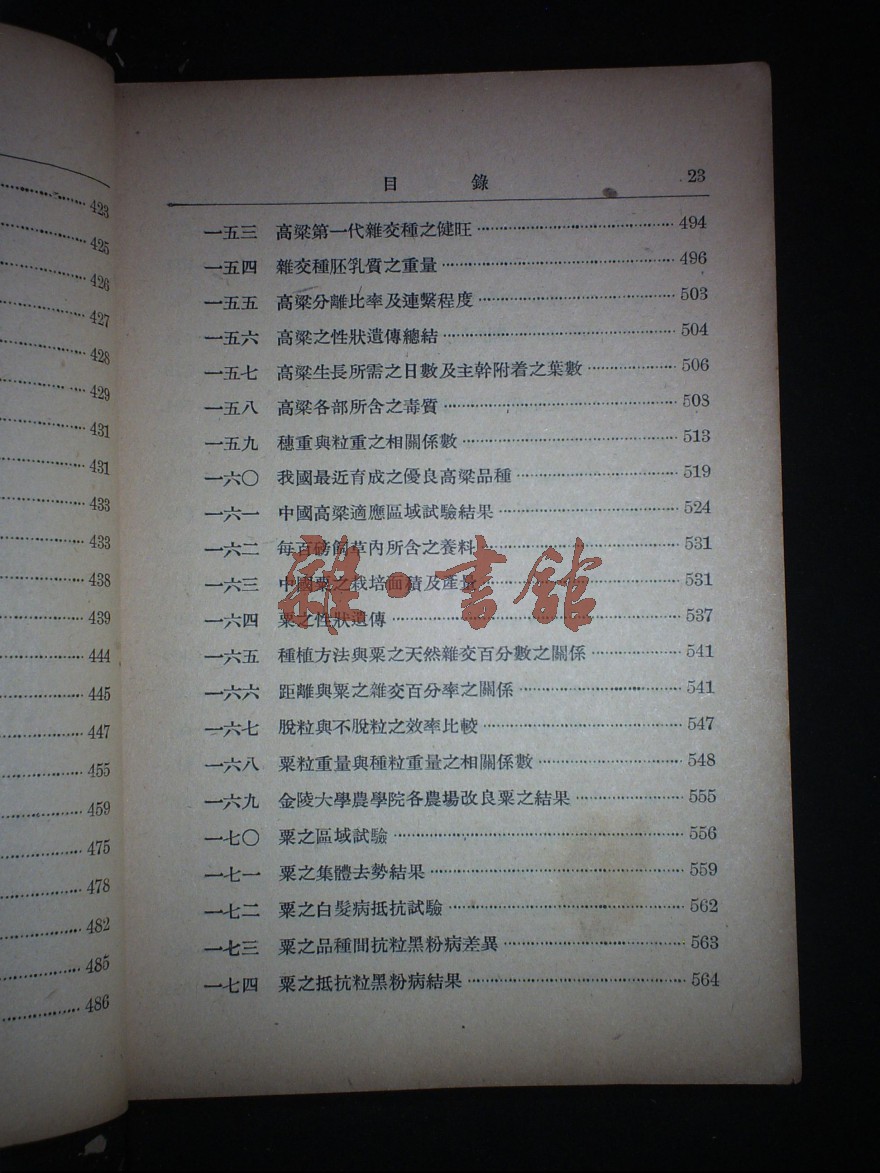 423
425
426
427
428
429
431
431
433
433
438
439
444
445
447
455
459
475
478
482
485
486
目錄 23
一五三 高粱第一代雜交種之健旺 494
一五四 雜交種胚乳質之重量 496
一五五 高粱分離比率及連繫程度 503
一五六 高粱之性狀遺傳總結 504
一五七 高粱生長所需之日數及主幹附着之葉數 506
一五八 高粱各部所含之毒質 508
一五九 穗重與粒重之相關係數 513
一六〇 我國最近育成之優良高粱品種 519
一六一 中國高粱適應區域試驗結果 524
一六二 每百磅飼草內所含之養料 531
一六三 中國粟之栽培面積及產量 531
一六四 粟之性狀遺傳 537
一六五 種植方法與粟之天然雜交百分數之關係 541
一六六 距離與粟之雜交百分率之關係 541
一六七 脫粒與不脫粒之效率比較 547
一六八 粟粒重量與種粒重量之相關係數 548
一六九 金陵大學農學院各農場改良粟之結果 555
一七〇 粟之區域試驗 556
一七一 粟之集體去勢結果 559
一七二 粟之白髮病抵抗試驗 562
一七三 粟之品種間抗粒黑粉病差異 563
一七四 粟之抵抗粒黑粉病結果 564
雜·書館